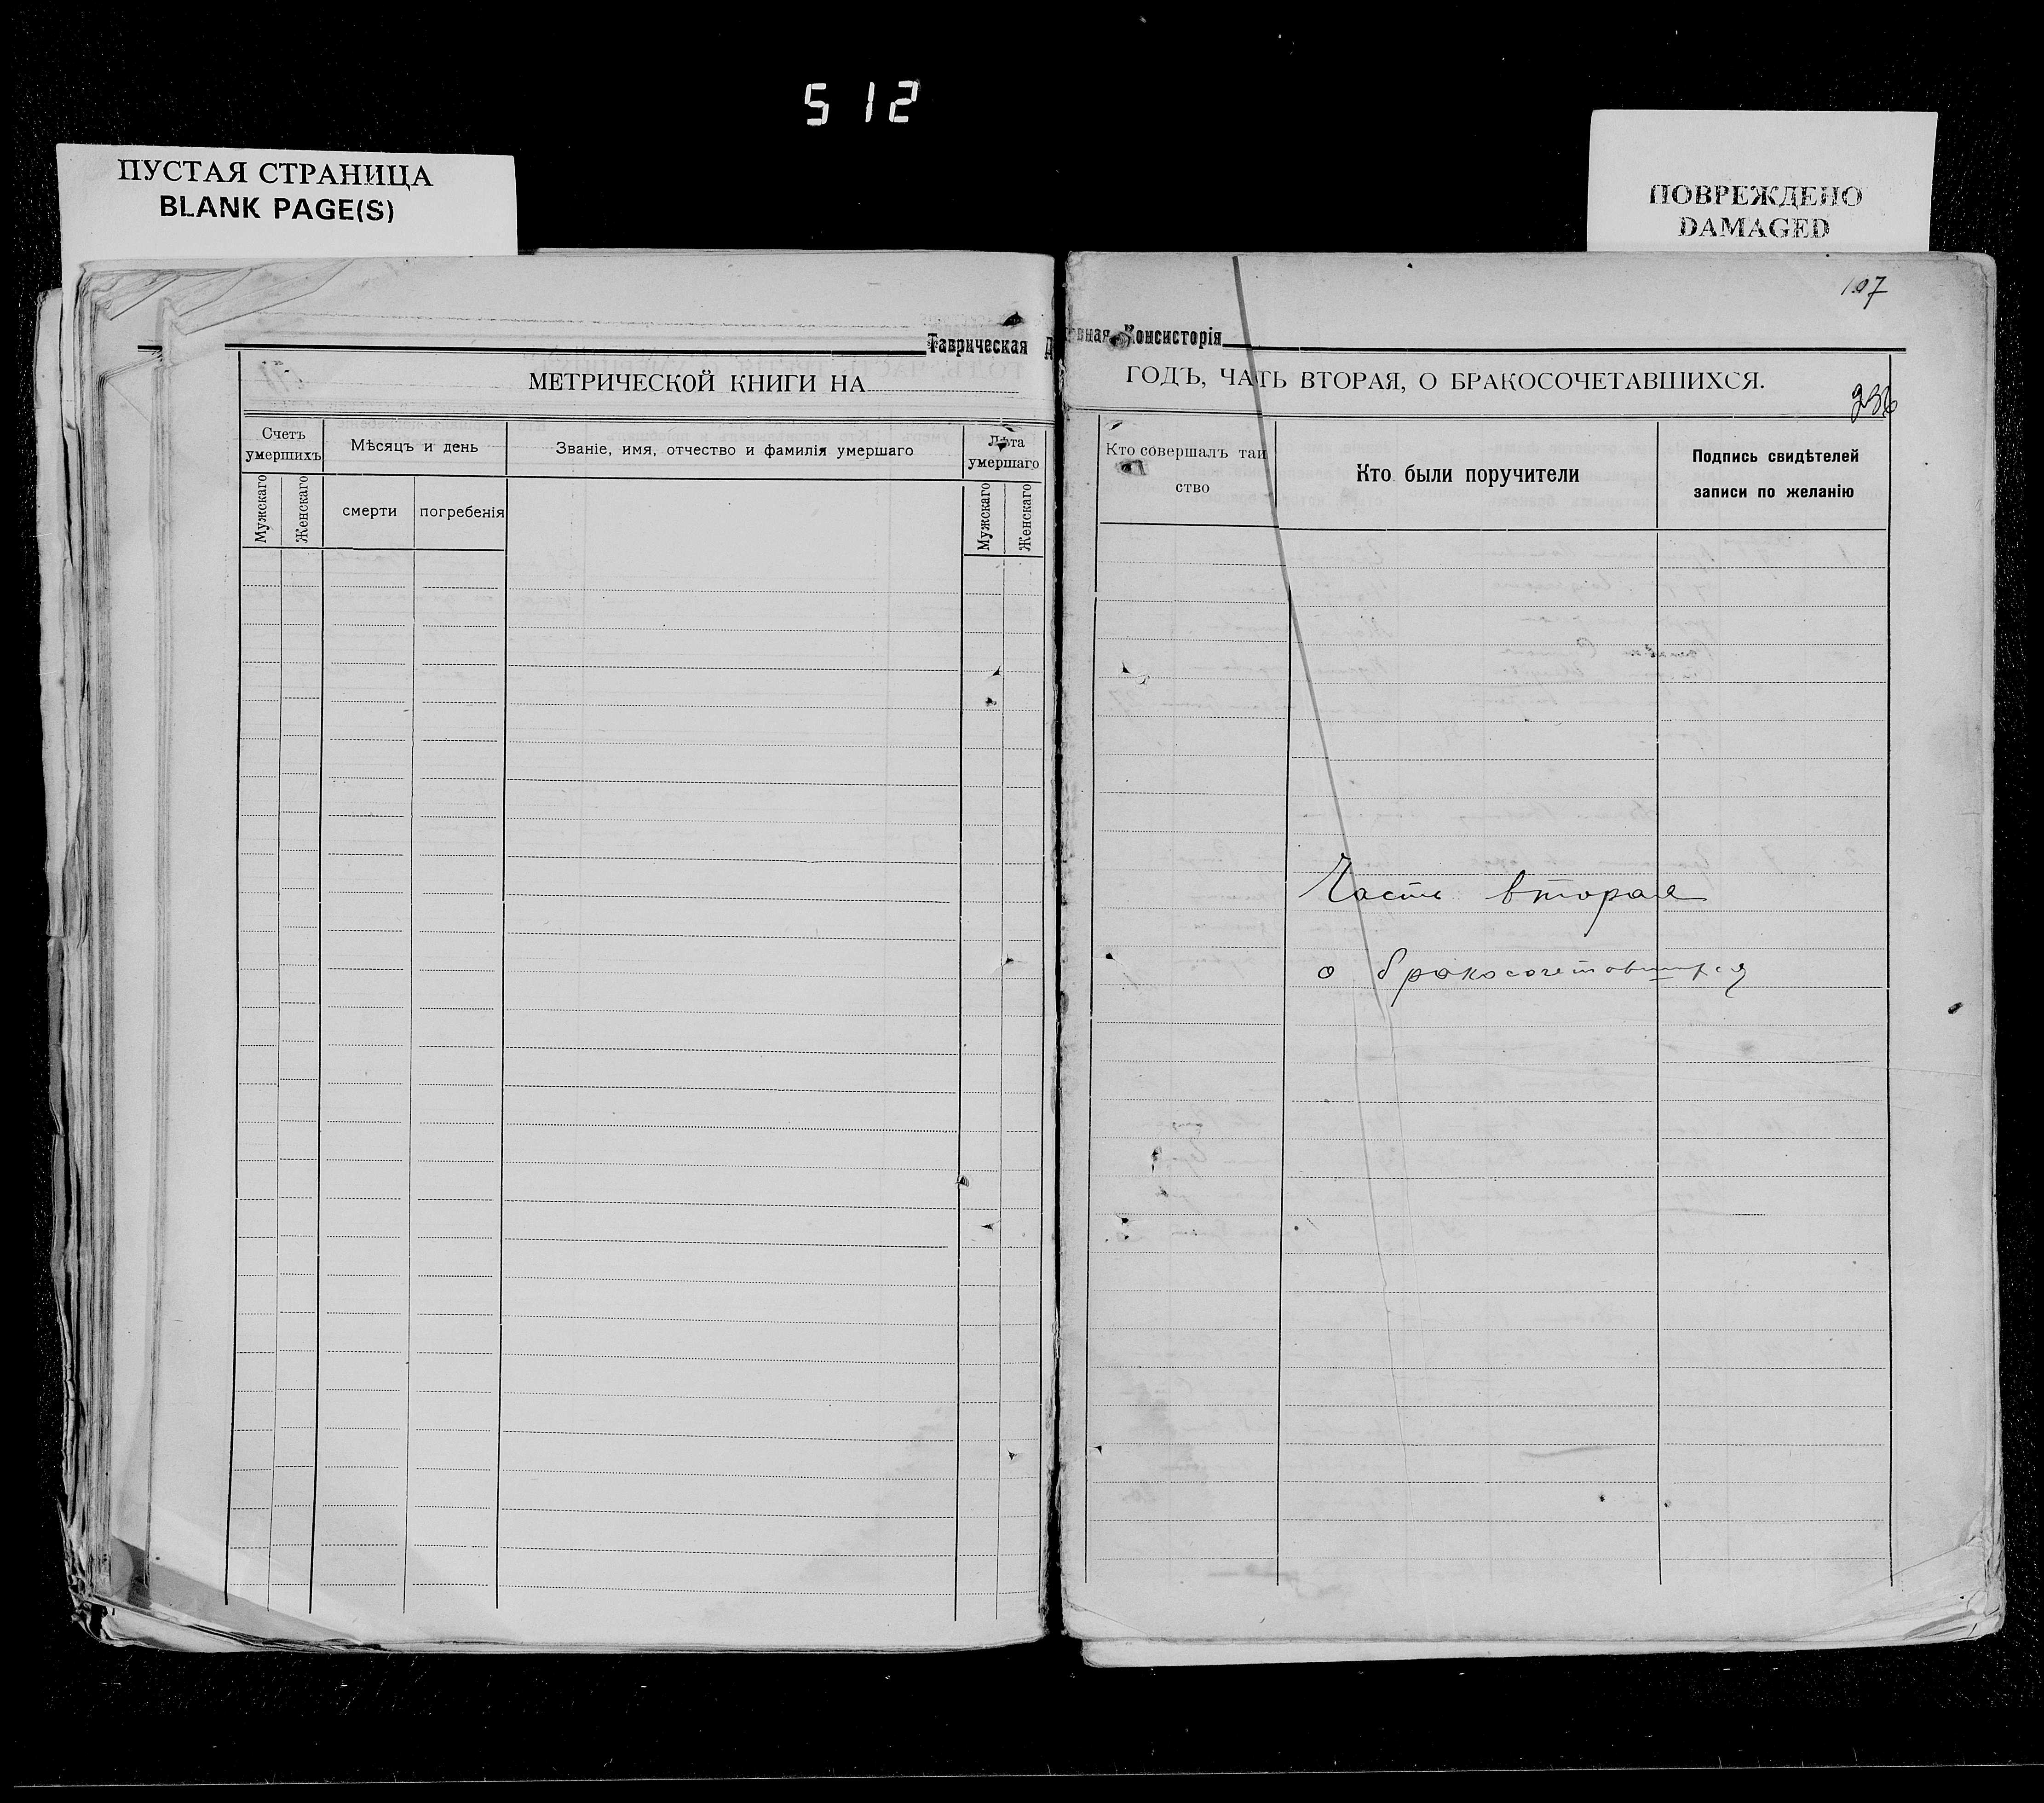 512
ПУСТАЯ СТРАНИЦА
BLANK PAGE(S)
ПОВРЕЖДЕНО
DAMAGED
107
Таврическая Д
вная Консисторія
МЕТРИЧЕСКОЙ КНИГИ НА
Счетъ умершихъ
Мѣсяцъ и день
Званіе, имя, отчество и фамилія умершаго
Лѣта умершаго
Мужскаго
Женскаго
смерти
погребенія
Мужскаго
Женскаго
ГОДЪ, ЧАТЬ ВТОРАЯ, О БРАКОСОЧЕТАВШИХСЯ.
Кто совершалъ таин
ство
Кто были поручители
Подпись свидѣтелей
записи по желанію
Часть вторая
о бракосочетавшихся